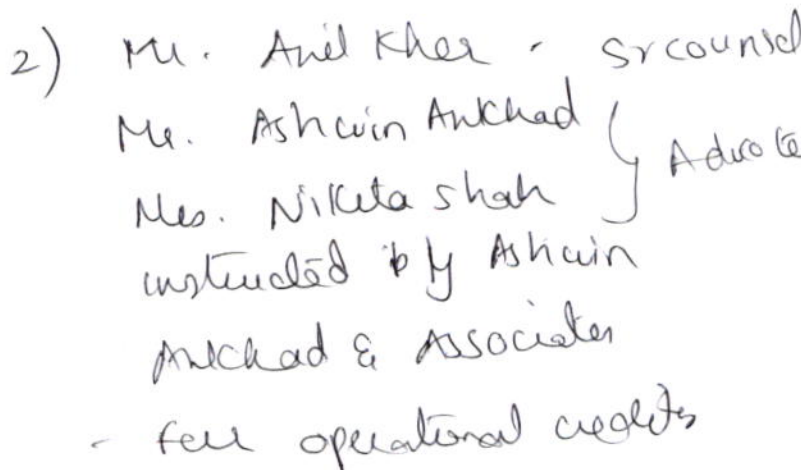 2) Mr. Anil Kher - Sr counsel
Mr. Ashwin Ankhad
Mrs. Niketa Shah } Advocate
instructed by Ashwin
Ankhad & Associates
- for operational creditors